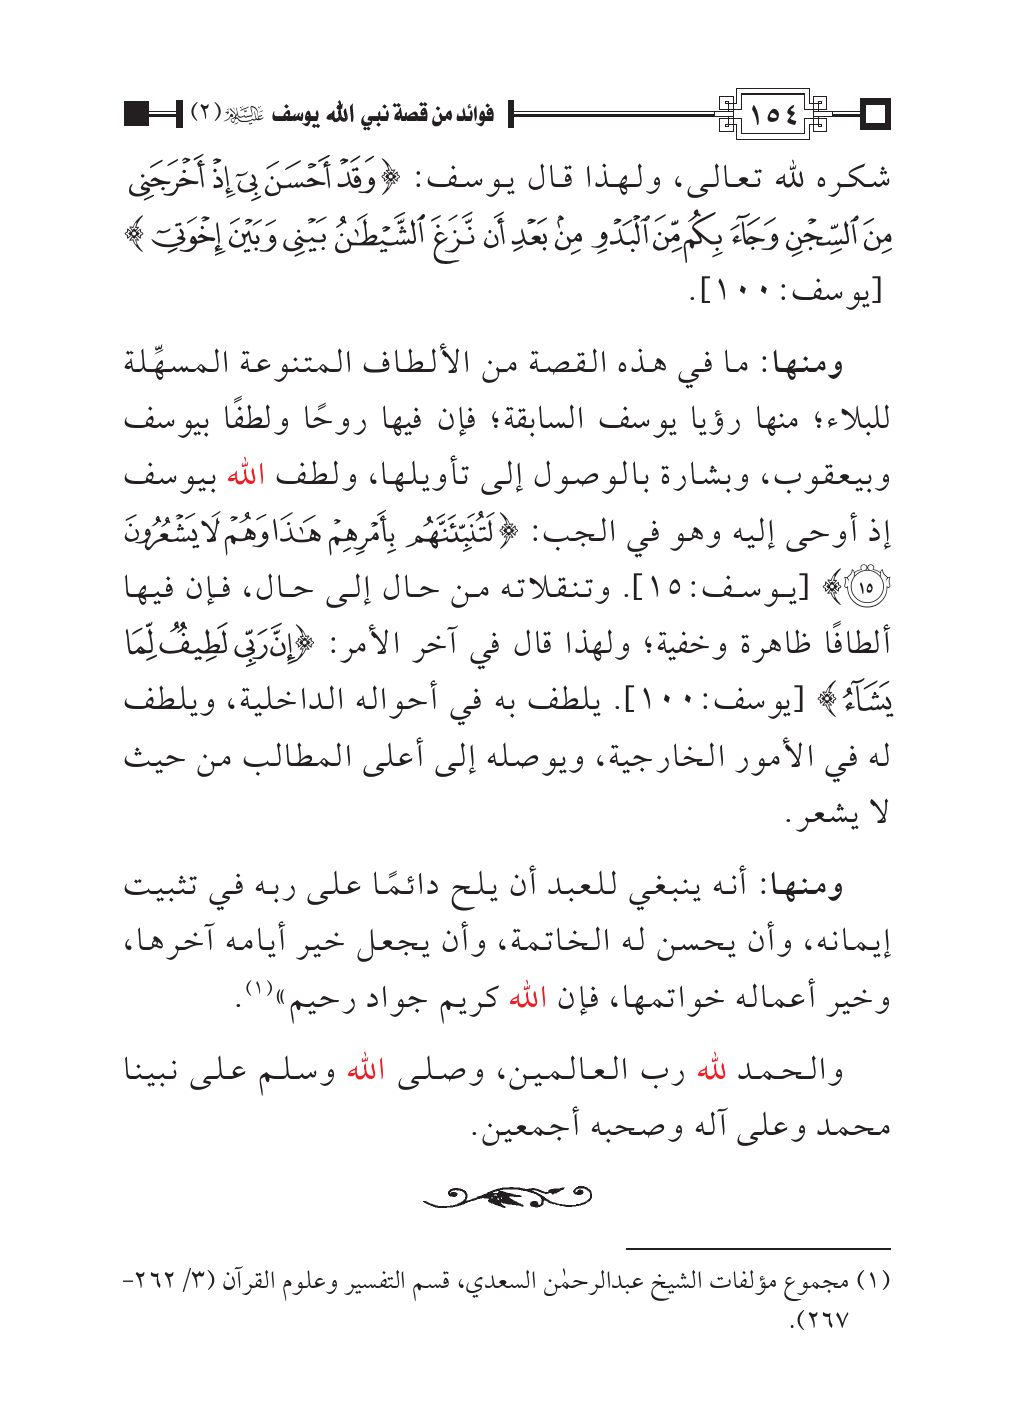 ١٥٤ فوائد من قصة نبي الله يوسف عليه السلام (٢)
شكره لله تعالى، ولهذا قال يوسف: ﴿وَقَدْ أَحْسَنَ بِيٓ إِذْ أَخْرَجَنِي
مِنَ ٱلسِّجْنِ وَجَآءَ بِكُم مِّنَ ٱلْبَدْوِ مِنۢ بَعْدِ أَن نَّزَغَ ٱلشَّيْطَـٰنُ بَيْنِي وَبَيْنَ إِخْوَتِيٓ﴾
[يوسف: ١٠٠].
ومنها: ما في هذه القصة من الألطاف المتنوعة المسهِّلة
للبلاء؛ منها رؤيا يوسف السابقة؛ فإن فيها روحًا ولطفًا بيوسف
وبيعقوب، وبشارة بالوصول إلى تأويلها، ولطف الله بيوسف
إذ أوحى إليه وهو في الجب: ﴿لَتُنَبِّئَنَّهُم بِأَمْرِهِمْ هَـٰذَا وَهُمْ لَا يَشْعُرُونَ
١٥﴾ [يوسف: ١٥]. وتنقلاته من حال إلى حال، فإن فيها
ألطافًا ظاهرة وخفية؛ ولهذا قال في آخر الأمر: ﴿إِنَّ رَبِّي لَطِيفٌ لِّمَا
يَشَآءُ﴾ [يوسف: ١٠٠]. يلطف به في أحواله الداخلية، ويلطف
له في الأمور الخارجية، ويوصله إلى أعلى المطالب من حيث
لا يشعر.
ومنها: أنه ينبغي للعبد أن يلح دائمًا على ربه في تثبيت
إيمانه، وأن يحسن له الخاتمة، وأن يجعل خير أيامه آخرها،
وخير أعماله خواتمها، فإن الله كريم جواد رحيم»(١).
والحمد لله رب العالمين، وصلى الله وسلم على نبينا
محمد وعلى آله وصحبه أجمعين.
(١) مجموع مؤلفات الشيخ عبدالرحمٰن السعدي، قسم التفسير وعلوم القرآن (٣/ ٢٦٢-
٢٦٧).